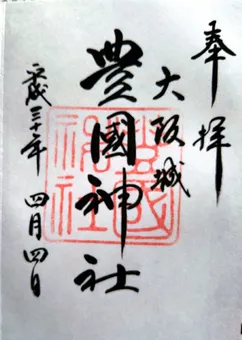 奉拝
大阪城
豊國神社
平成三十年 四月四日
豊國神社